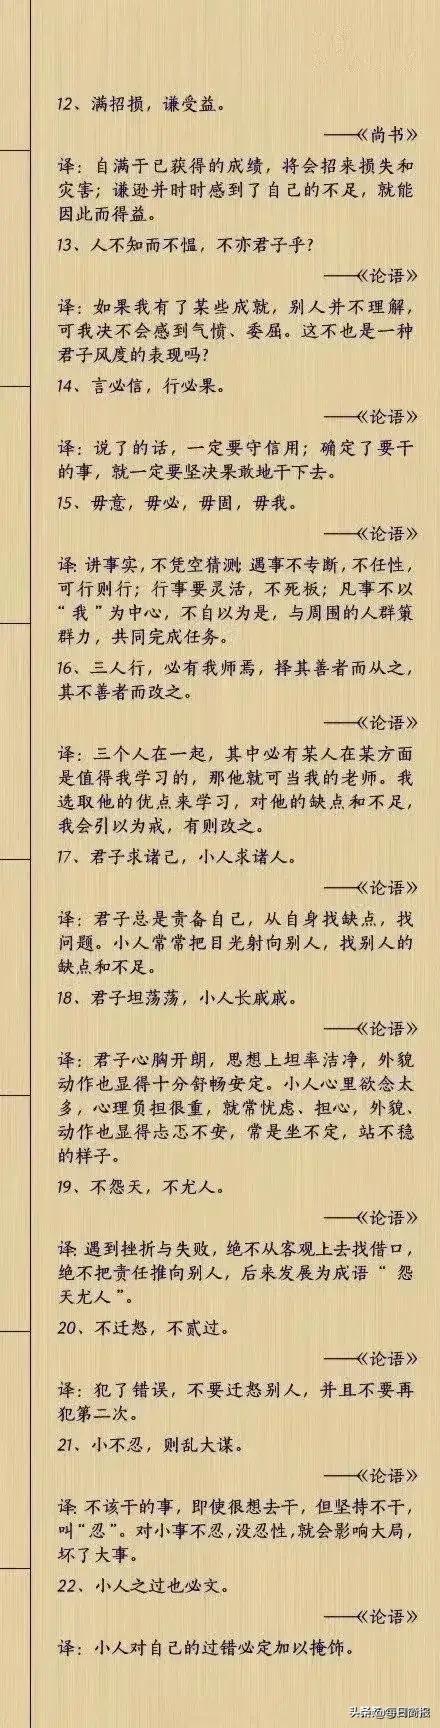 12、满招损，谦受益。
——《尚书》
译：自满于已获得的成绩，将会招来损失和
灾害；谦逊并时时感到了自己的不足，就能
因此而得益。
13、人不知而不愠，不亦君子乎？
——《论语》
译：如果我有了某些成就，别人并不理解，
可我决不会感到气愤、委屈。这不也是一种
君子风度的表现吗？
14、言必信，行必果。
——《论语》
译：说了的话，一定要守信用；确定了要干
的事，就一定要坚决果敢地干下去。
15、毋意，毋必，毋固，毋我。
——《论语》
译：讲事实，不凭空猜测；遇事不专断，不任性，
可行则行；行事要灵活，不死板；凡事不以
“我”为中心，不自以为是，与周围的人群策
群力，共同完成任务。
16、三人行，必有我师焉，择其善者而从之，
其不善者而改之。
——《论语》
译：三个人在一起，其中必有某人在某方面
是值得我学习的，那他就可当我的老师。我
选取他的优点来学习，对他的缺点和不足，
我会引以为戒，有则改之。
17、君子求诸己，小人求诸人。
——《论语》
译：君子总是责备自己，从自身找缺点，找
问题。小人常常把目光射向别人，找别人的
缺点和不足。
18、君子坦荡荡，小人长戚戚。
——《论语》
译：君子心胸开朗，思想上坦率洁净，外貌
动作也显得十分舒畅安定。小人心里欲念太
多，心理负担很重，就常忧虑、担心，外貌、
动作也显得忐忑不安，常是坐不定，站不稳
的样子。
19、不怨天，不尤人。
——《论语》
译：遇到挫折与失败，绝不从客观上去找借口，
绝不把责任推向别人，后来发展为成语“怨
天尤人”。
20、不迁怒，不贰过。
——《论语》
译：犯了错误，不要迁怒别人，并且不要再
犯第二次。
21、小不忍，则乱大谋。
——《论语》
译：不该干的事，即使很想去干，但坚持不干，
叫“忍”。对小事不忍，没忍性，就会影响大局，
坏了大事。
22、小人之过也必文。
——《论语》
译：小人对自己的过错必定加以掩饰。
头条@每日商报